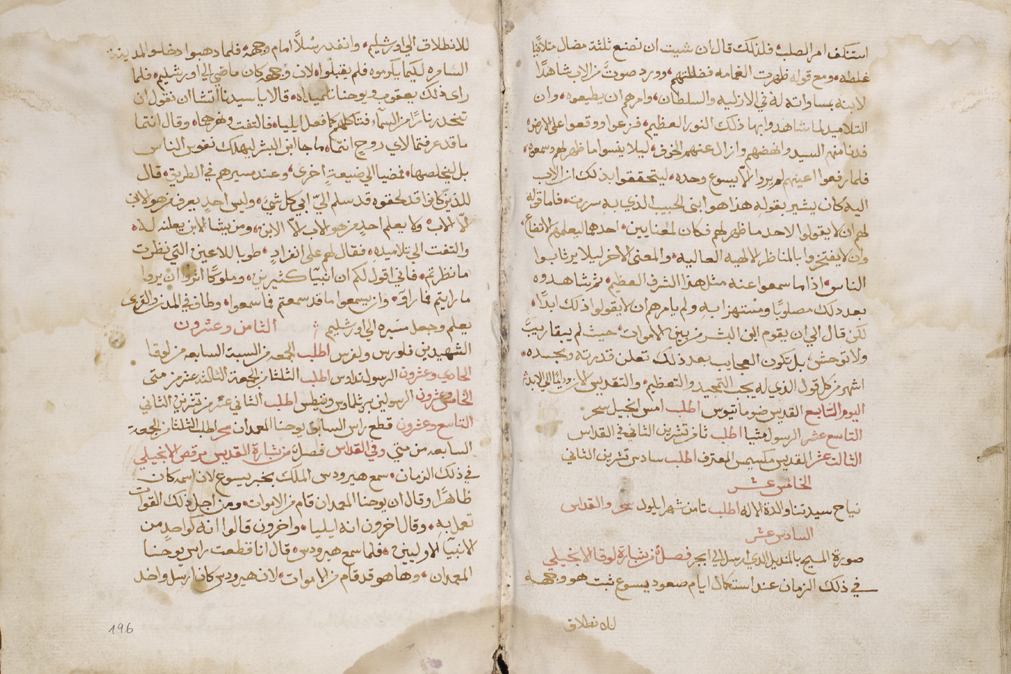 استكف امر الصلب فلذلك قال ان شيت ان نصنع ثلثة مضال متلافيا
غلطه ومع قوله ظهرت الغمامه فظللتهم وورد صوت من الاب شاهدا
لابنه بمساواته له في الازليه والسلطان وامرهم ان يطيعوه وان
التلاميذ لما شاهدوا بها ذلك النور العظيم فزعوا ووقعوا على الارض
فدنا منهم السيد وانهضهم وازال عنهم الخوف ليلا ينسوا ما ظهر لهم وسمعوه
فلما رفعوا اعينهم لم يروا الا يسوع وحده ليتحققوا بذلك ان الاب
اليه كان يشير بقوله هذا هو ابني الحبيب الذي به سررت فاما قوله
لهم ان لا يقولوا لاحد ما ظهر لهم فكان لمعنايين احدهما ليعلمهم الاتضاع
وان لا يفتخروا بالمناظر الالهيه العاليه والمعنى الاخر ليلا يرتابوا
الناس اذا ما سمعوا عنه مثل هذا الشرف العظيم ثم شاهدوه
بعد ذلك مصلوبا ومستهزا به ولم يامرهم ان لا يقولوا ذلك ابدا
لكن قال الى ان يقوم ابن البشر من بين الاموات حيث لم يبقا ريب
ولا توحش بل تكون العجايب بعد ذلك تعلن قدرته وتمجيده
اشهر من كل قول الذي له يجب التمجيد والتعظيم والتقديس الان ودايما الى الابد
اليوم التاسع القديس ضوماتيوس اطلب امس انجيل سحر
التاسع عشر الرسول متيا اطلب ثامن تشرين الثاني في القداس
الثالث عشر القديس مكسيمس المعترف اطلب سادس تشرين الثاني
الخامس عشر
نياح سيدتنا والدة الاله اطلب ثامن شهر ايلول سحر والقداس
السادس عشر
صورة المسيح بالمنديل الذي ارسل الى ابجر فصل من بشارة لوقا الانجيلي
في ذلك الزمان عند استكمال ايام صعود يسوع ثبت هو وجهه
للانطلاق
للانطلاق الى اورشليم وانفد رسلا امام وجهه فلما ذهبوا دخلوا المدينة
السامره لكيما يكرموه فلم يقبلوه لان وجهه كان ماضي الى اورشليم فلما
راى ذلك يعقوب ويوحنا تلميذاه قالا يا سيدنا اتشا ان نقول ان
تنحدر نارا من السماء فتاكلهم كما فعل ايليا فالتفت ونهرهما وقال انتما
ما قد عرفتما لاي روح انتما ما جا ابن البشر ليهلك نفوس الناس
بل ليخلصها فمضيا الى ضيعة اخرى وعند مسيرهم في الطريق قال
للذين كانوا قد لحقوه قد سلم الي ابي كل شي وليس احد يعرف من هو الابن
الا الاب ولا يعلم احد من هو الاب الا الابن ومن يشا الابن يعلنه له
والتفت الى تلاميذه فقال لهم على انفراد طوبا للاعين التي نظرت
ما نظرتم فاني اقول لكم ان انبيا كثيرين وملوكا اثروا ان يروا
ما رايتم فما راو وان يسمعوا ما قد سمعتم فما سمعوا وطاف في المدن والقرى
يعلم وجعل مسيره الى اورشليم الثامن وعشرون
الشهيدين فلورس ولفرس اطلب الجمعه من السبة السابعه من لوقا
الحادي وعشرون الرسول تداوس اطلب الثلثا من الجمعة الثالثة عشر من متى
الخامس وعشرون الرسولين برثلماوس وطيطس اطلب الثاني عشر من تشرين الثاني
التاسع وعشرون قطع راس السابق يوحنا المعمدان سحر اطلب الثلثا من الجمعه
السابعه من متى وفي القداس فصل من بشارة القديس مرقص الانجيلي
في ذلك الزمان سمع هيرودس الملك بخبر يسوع لان اسمه كان
ظاهرا وقال ان يوحنا المعمدان قام من الاموات ومن اجل ذلك القوات
تعمل به وقال اخرون انه ايليا واخرون قالوا انه كواحد من
الانبيا الاوليين فلما سمع هيرودس قال انا قطعت راس يوحنا
المعمدان وها هو قد قام من الاموات لان هيرودس كان ارسل واخذ
196